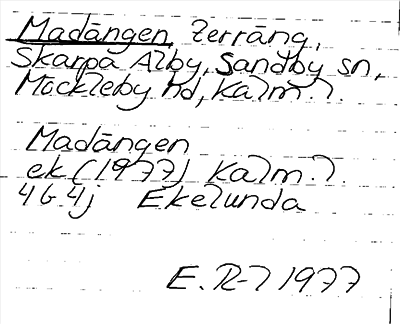 Madängen, terräng,
Skarpa Alby, Sandby sn,
Möckleby hd, Kalm. l.
Madängen
ek (1977) Kalm. l.
4G 4j Ekelunda
E. R-l 1977